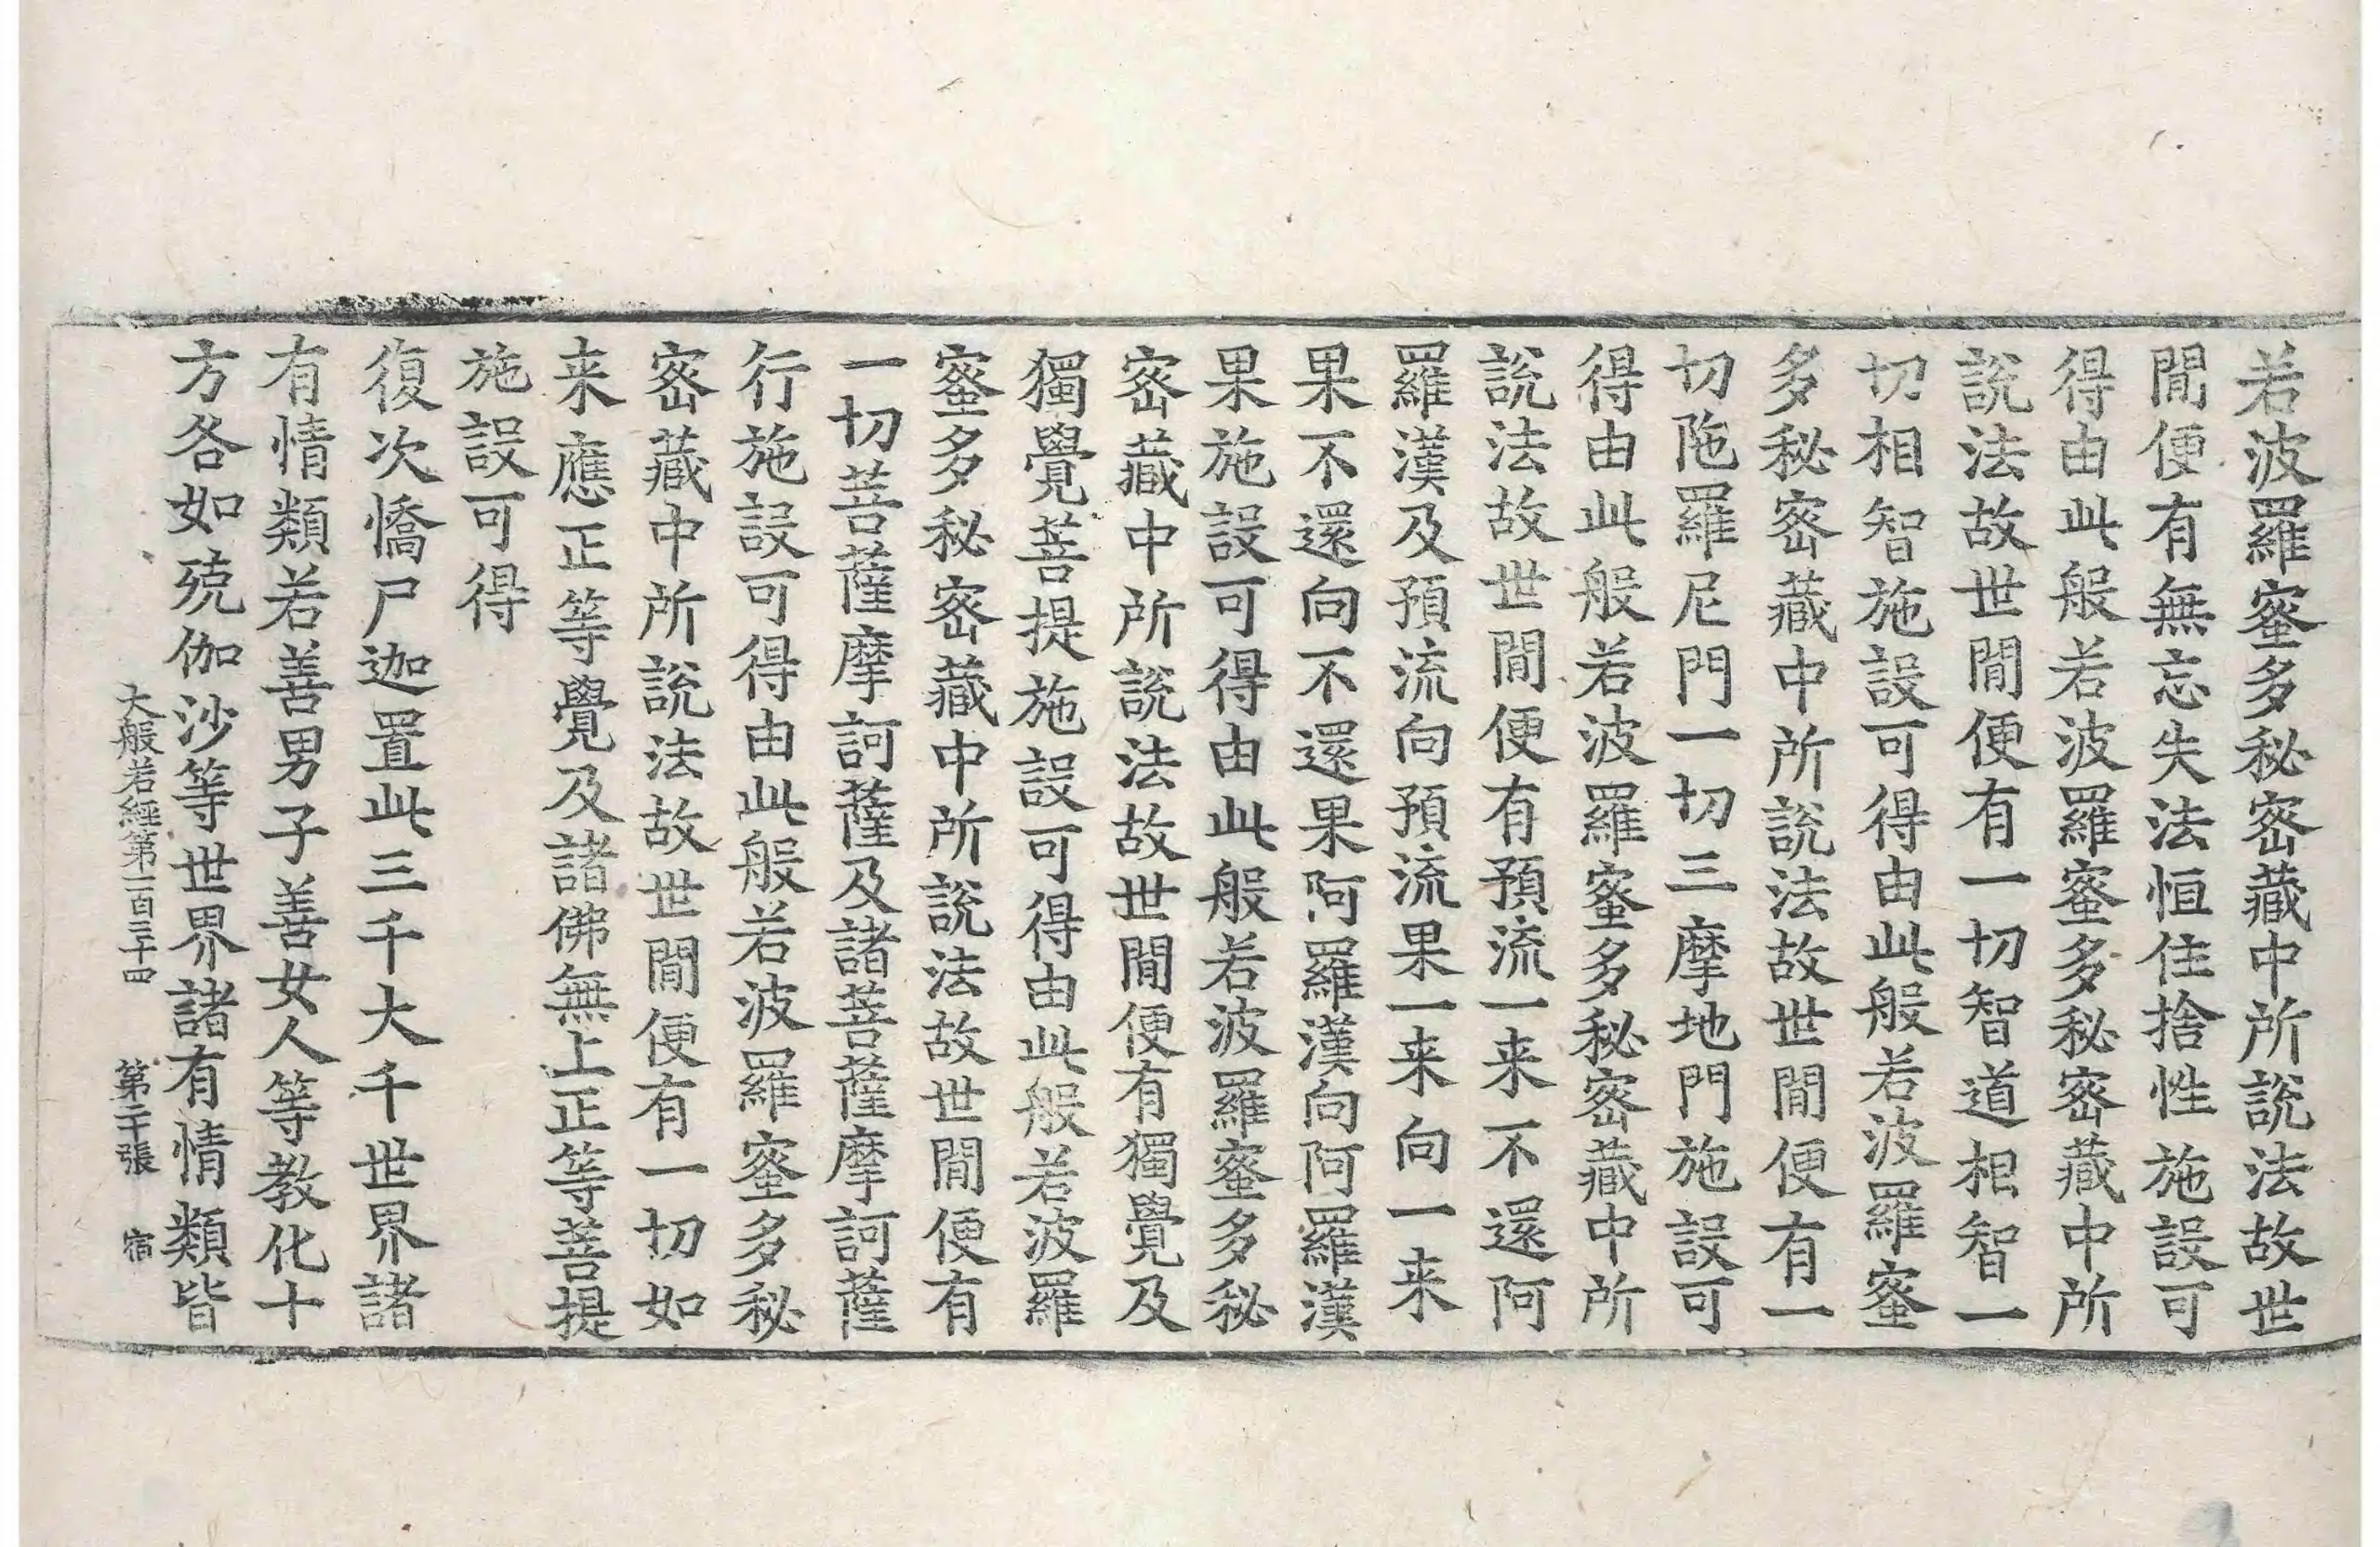 若波羅蜜多秘密藏中所說法故世
閒便有無忘失法恒住捨性施設可
得由此般若波羅蜜多秘密藏中所
說法故世閒便有一切智道相智一
切相智施設可得由此般若波羅蜜
多秘密藏中所說法故世閒便有一
切陁羅尼門一切三摩地門施設可
得由此般若波羅蜜多秘密藏中所
說法故世閒便有預流一来不還阿
羅漢及預流向預流果一来向一来
果不還向不還果阿羅漢向阿羅漢
果施設可得由此般若波羅蜜多秘
密藏中所說法故世閒便有獨覺及
獨覺菩提施設可得由此般若波羅
蜜多秘密藏中所說法故世閒便有
一切菩薩摩訶薩及諸菩薩摩訶薩
行施設可得由此般若波羅蜜多秘
密藏中所說法故世閒便有一切如
来應正等覺及諸佛無上正等菩提
施設可得
復次憍尸迦置此三千大千世界諸
有情類若善男子善女人等教化十
方各如殑伽沙等世界諸有情類皆
大般若經第一百三十四 第二十張 宿